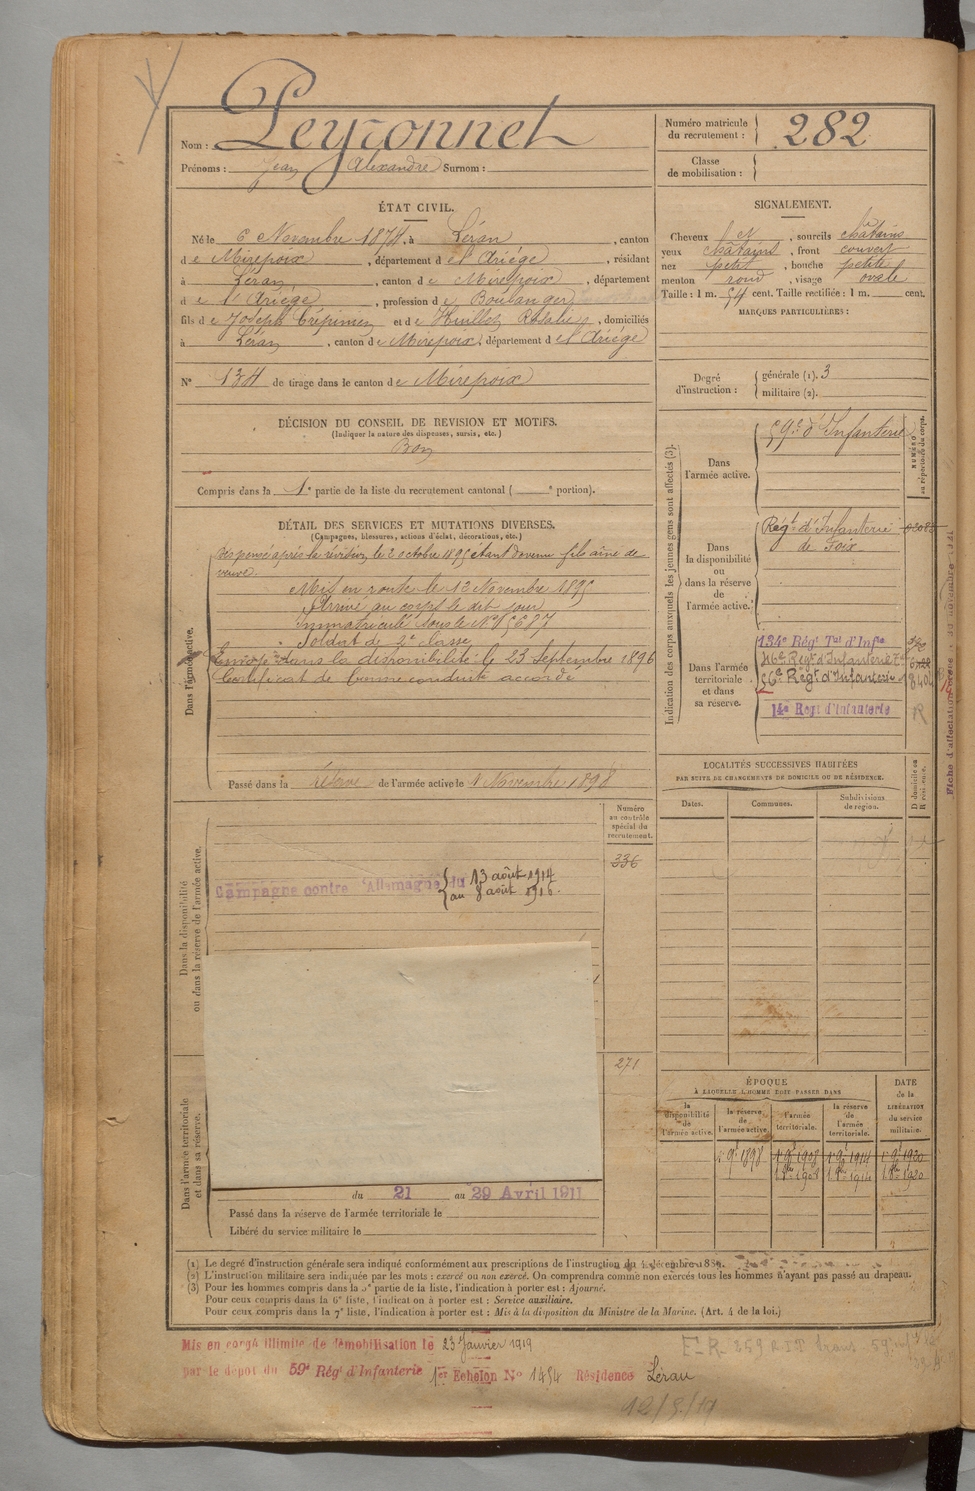 Nom : Peyronnet
Prénoms : Jean Alexandre Surnom :
Numéro matricule du recrutement : 282
Classe de mobilisation :
ÉTAT CIVIL.
Né le 6 Novembre 1874, à Léran, canton
de Mirepoix, département de l'Ariége, résidant
à Léran, canton de Mirepoix, département
de l'Ariége, profession de Boulanger
fils de Joseph Crépin et de Rosalie, domiciliés
à Léran, canton de Mirepoix, département de l'Ariége
N° 134 de tirage dans le canton de Mirepoix
SIGNALEMENT.
Cheveux et, sourcils châtains
yeux châtains, front couvert
nez petit, bouche petite
menton rond, visage ovale
Taille : 1 m. 54 cent. Taille rectifiée : 1 m. cent.
MARQUES PARTICULIÈRES :
Degré d'instruction : générale (1). 3
militaire (2).
DÉCISION DU CONSEIL DE REVISION ET MOTIFS.
(Indiquer la nature des dispenses, sursis, etc.)
Bon
Compris dans la 1e partie de la liste du recrutement cantonal ( e portion).
DÉTAIL DES SERVICES ET MUTATIONS DIVERSES.
(Campagnes, blessures, actions d'éclat, décorations, etc.)
Dans l'armée active.
Dispensé après la révision, le 2 octobre 1895 étant devenu fils aîné de
veuve.
Mis en route le 12 Novembre 1895
Arrivé au corps le dit jour
Immatriculé sous le N°
Soldat de 2e classe
Envoyé dans la disponibilité le 23 Septembre 1896
Certificat de bonne conduite accordé
Passé dans la réserve de l'armée active le 1 Novembre 1898
Indication des corps auxquels les jeunes gens sont affectés (3).
Dans l'armée active.
59e d'Infanterie
NUMÉRO au répertoire du corps.
Dans la disponibilité ou dans la réserve de l'armée active.
Régt d'Infanterie
de Foix
Dans l'armée territoriale et dans sa réserve.
134e Régt Tal d'Infie
Régt d'Infanterie
Régt d'Infanterie
14e Régt d'Infanterie
R
LOCALITÉS SUCCESSIVES HABITÉES
PAR SUITE DE CHANGEMENTS DE DOMICILE OU DE RÉSIDENCE.
Dates.
Communes.
Subdivisions de région.
D domicile ou R résidence.
Dans la disponibilité ou dans la réserve de l'armée active.
Numéro au contrôle spécial du recrutement.
336
Campagne contre l'Allemagne du 13 août 1914
au 8 août 1916.
271
Dans l'armée territoriale et dans sa réserve.
du 21 au 29 Avril 1911
Passé dans la réserve de l'armée territoriale le
Libéré du service militaire le
ÉPOQUE
À LAQUELLE L'HOMME DOIT PASSER DANS
la disponibilité de l'armée active.
la réserve de l'armée active.
l'armée territoriale.
la réserve de l'armée territoriale.
DATE de la LIBÉRATION du service militaire.
1 9bre 1898 1 9bre 1908 1 9bre 1914 1 9bre 1920
(1) Le degré d'instruction générale sera indiqué conformément aux prescriptions de l'instruction du 4 décembre
(2) L'instruction militaire sera indiquée par les mots : exercé ou non exercé. On comprendra comme non exercés tous les hommes n'ayant pas passé au drapeau.
(3) Pour les hommes compris dans la 5e partie de la liste, l'indication à porter est : Ajourné.
Pour ceux compris dans la 6e liste, l'indication à porter est : Service auxiliaire.
Pour ceux compris dans la 7e liste, l'indication à porter est : Mis à la disposition du Ministre de la Marine. (Art. 4 de la loi.)
Mis en congé illimité de démobilisation le 23 Janvier 1919
par le dépôt du 59e Régt d'Infanterie 1er Echelon N° 1454 Résidence Léran